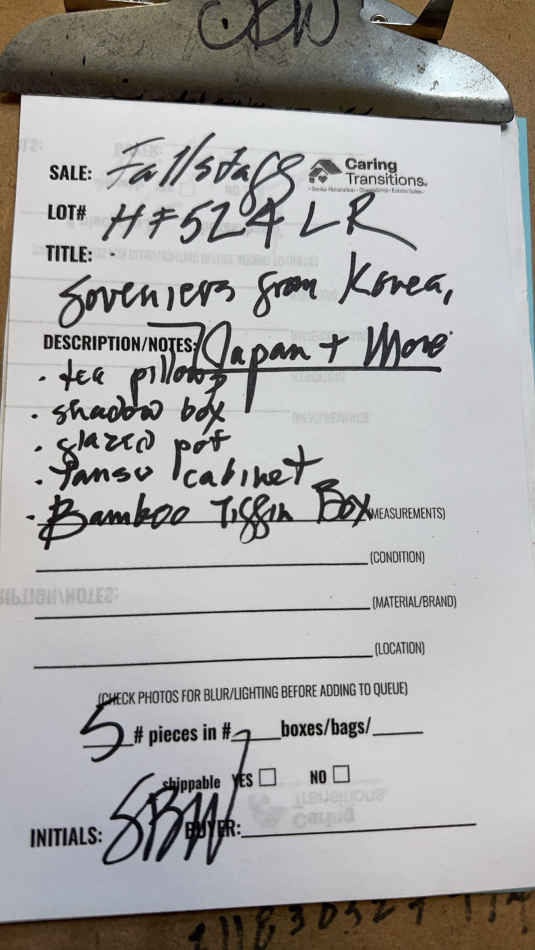 SBW
SALE: Fallstaff
Caring
Transitions
LOT# HF524 LR
TITLE:
Soveniers from Korea,
DESCRIPTION/NOTES: Japan + More
· tea pillows
· shadow box
· glazed pot
· Tansu cabinet
· Bamboo Tiffin Box
(MEASUREMENTS)
(CONDITION)
(MATERIAL/BRAND)
(LOCATION)
(CHECK PHOTOS FOR BLUR/LIGHTING BEFORE ADDING TO QUEUE)
5 # pieces in # boxes/bags/
shippable YES NO
INITIALS: SBW BUYER: